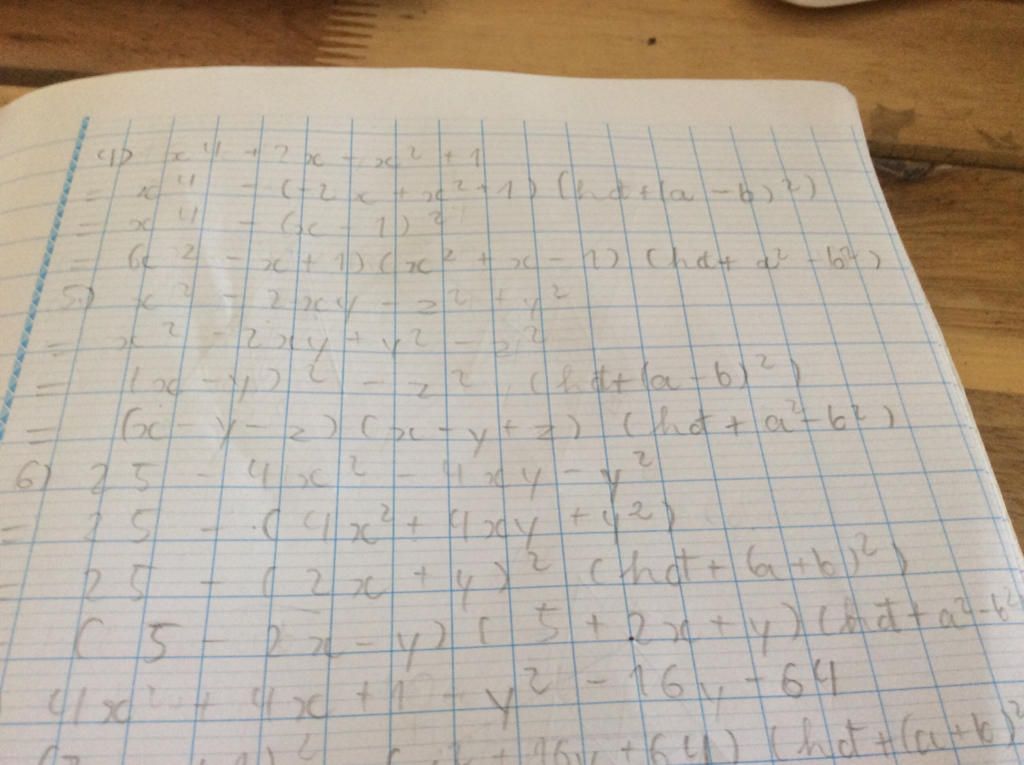 4) x⁴ + 2x - x² + 1
= x⁴ - (-2x + x² + 1) (hđt (a - b)²)
= x⁴ - (x - 1)²
= (x² - x + 1) (x² + x - 1) (hđt a² - b²)
5) x² - 2xy - z² + y²
= x² - 2xy + y² - z²
= (x - y)² - z² (hđt (a - b)²)
= (x - y - z) (x - y + z) (hđt a² - b²)
6) 25 - 4x² - 4xy - y²
= 25 - (4x² + 4xy + y²)
= 25 - (2x + y)² (hđt (a + b)²)
(5 - 2x - y) (5 + 2x + y) (hđt a² - b²
4x² + 4x + 1 - y² - 16y - 64
)² + 16y + 64) (hđt (a + b)²